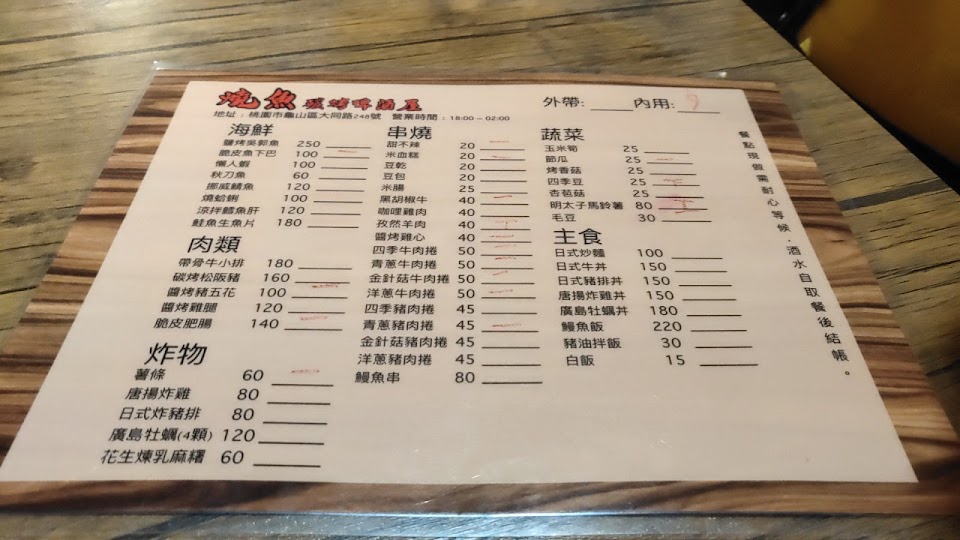 燒魚 碳烤啤酒屋
外帶: 內用: 9
地址：桃園市龜山區大同路248號 營業時間：18:00－02:00
海鮮
鹽烤吳郭魚 250
脆皮魚下巴 100
懶人蝦 100
秋刀魚 60
挪威鯖魚 120
燒蛤蜊 100
涼拌鱈魚肝 120
鮭魚生魚片 180
肉類
帶骨牛小排 180
碳烤松阪豬 160
醬烤豬五花 100
醬烤雞腿 120
脆皮肥腸 140
炸物
薯條 60
唐揚炸雞 80
日式炸豬排 80
廣島牡蠣(4顆) 120
花生煉乳麻糬 60
串燒
甜不辣 20
米血糕 20
豆乾 20
豆包 20
米腸 25
黑胡椒牛 40
咖哩雞肉 40
孜然羊肉 40
醬烤雞心 40
四季牛肉捲 50
青蔥牛肉捲 50
金針菇牛肉捲 50
洋蔥牛肉捲 50
四季豬肉捲 45
青蔥豬肉捲 45
金針菇豬肉捲 45
洋蔥豬肉捲 45
鰻魚串 80
蔬菜
玉米筍 25
節瓜 25
烤香菇 25
四季豆 25
杏苞菇 25
明太子馬鈴薯 80
毛豆 30
主食
日式炒麵 100
日式牛丼 150
日式豬排丼 150
唐揚炸雞丼 150
廣島牡蠣丼 180
鰻魚飯 220
豬油拌飯 30
白飯 15
餐點現做需耐心等候．酒水自取餐後結帳。